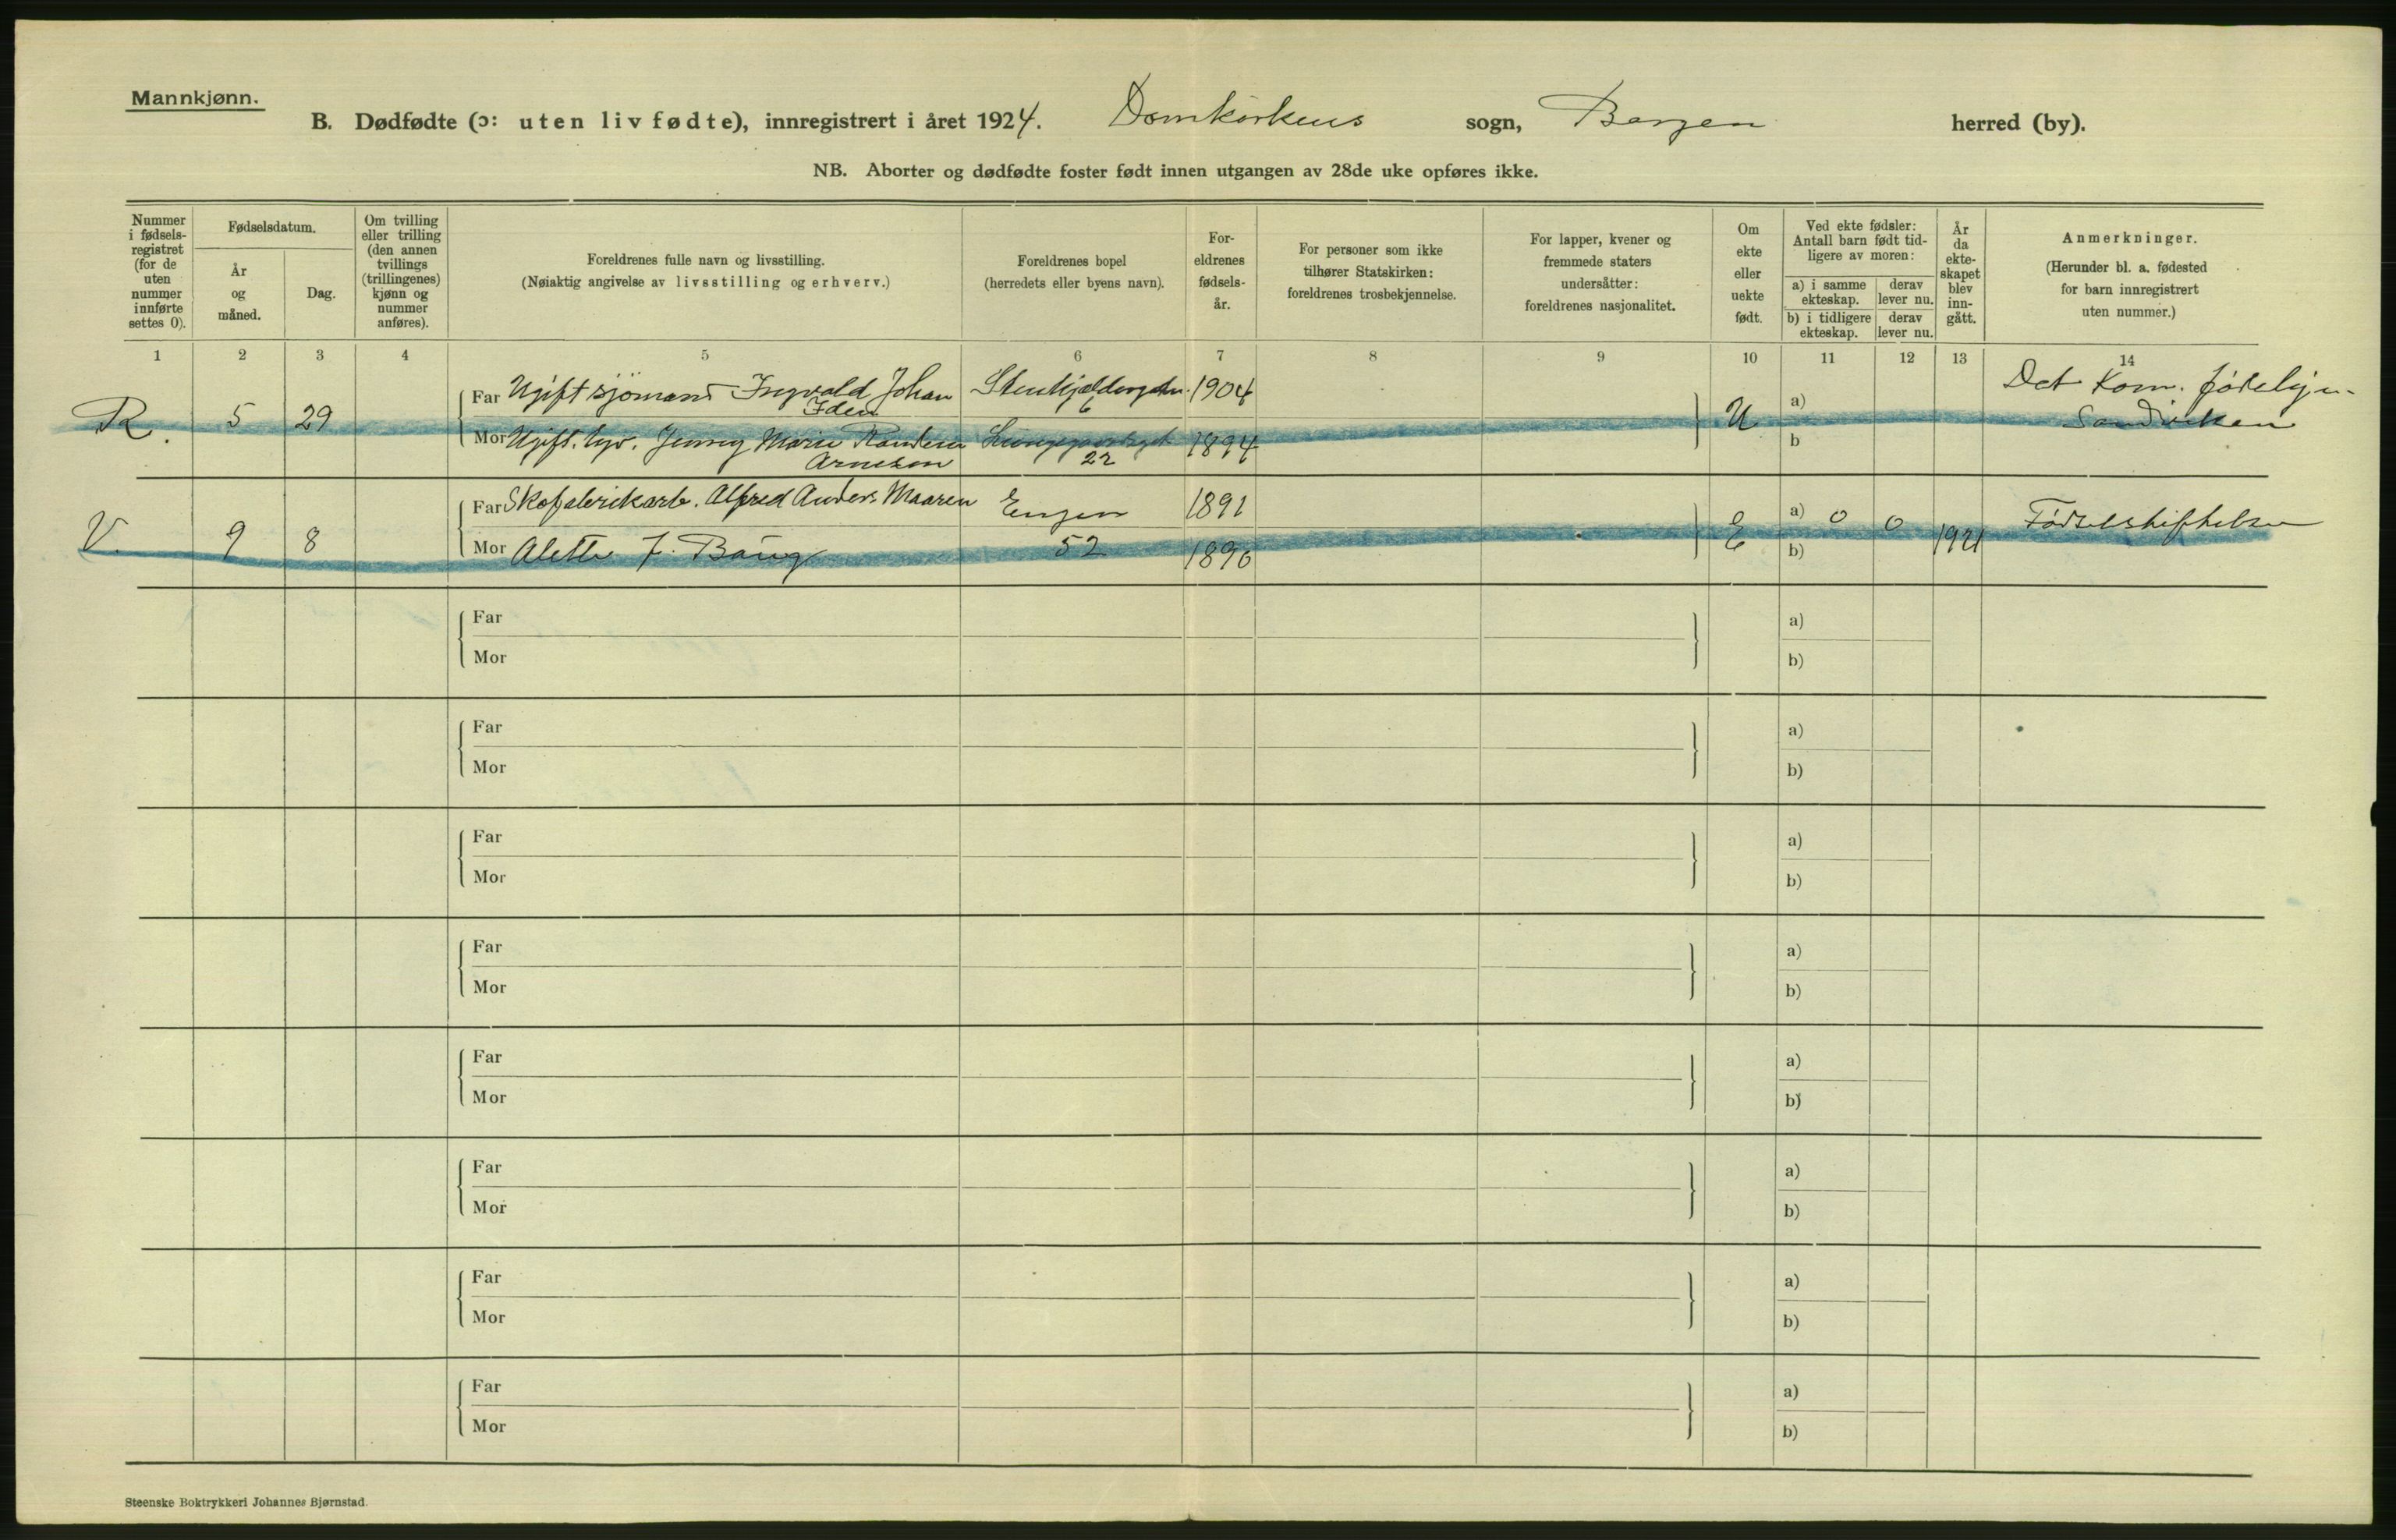 Mannkjønn.
B. Dødfødte (ɔ: uten liv fødte), innregistrert i året 1924. Domkirkens sogn, Bergen herred (by).
NB. Aborter og dødfødte foster født innen utgangen av 28de uke opføres ikke.
Nummer i fødsels-registret (for de uten nummer innførte settes 0).
Fødselsdatum.
År og måned.
Dag.
Om tvilling eller trilling (den annen tvillings (trillingenes) kjønn og nummer anføres).
Foreldrenes fulle navn og livsstilling.
(Nøiaktig angivelse av livsstilling og erhverv.)
Foreldrenes bopel
(herredets eller byens navn).
For-eldrenes fødsels-år.
For personer som ikke tilhører Statskirken: foreldrenes trosbekjennelse.
For lapper, kvener og fremmede staters undersåtter: foreldrenes nasjonalitet.
Om ekte eller uekte født.
Ved ekte fødsler: Antall barn født tid-ligere av moren:
a) i samme ekteskap.
derav lever nu.
b) i tidligere ekteskap.
derav lever nu.
År da ekte-skapet blev inn-gått.
Anmerkninger.
(Herunder bl. a. fødested for barn innregistrert uten nummer.)
1 2 3 4 5 6 7 8 9 10 11 12 13 14
R. 5 29
Far Ugift sjømand Ingvald Johan
6 1904
Mor Ugift. Jenny Marie
Arnesen 22 1894
U a)
b
Det Kom. födehj.
Sandviken
V. 9 8
Far Skofabrikarb. Alfred Anders Maaren Engen 1891
Mor Alette J. Baug 52 1896
E a) 0 0 1921 Fødselsstiftelsen
b)
Far a)
Mor b)
Far a)
Mor b)
Far a)
Mor b)
Far a)
Mor b)
Far a)
Mor b)
Far a)
Mor b)
Far a)
Mor b)
Far a)
Mor b)
Steenske Boktrykkeri Johannes Bjørnstad.